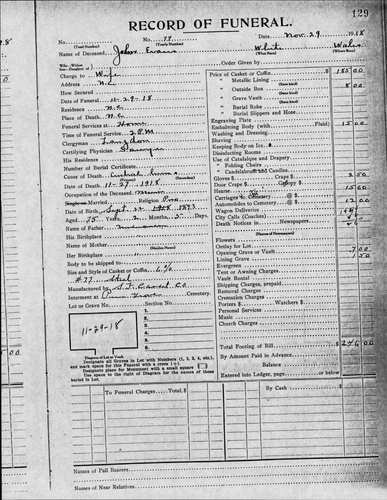 129
RECORD OF FUNERAL.
No. No. 79 Date Nov. 29 1918
(Total Number) (Yearly Number)
Name of Deceased John Evans White Wales
(What Race) (Where Born)
Charge to Wife Order Given by
Address N.C.
How Secured
Date of Funeral 11-29-18
Residence N.C.
Place of Death N.C.
Funeral Services at Home
Time of Funeral Service 2 PM
Clergyman Langdon
Certifying Physician
His Residence
Number of Burial Certificate
Cause of Death
Date of Death 11-27-1918
Occupation of Deceased Miner
Single or Married Religion Pros
Date of Birth Sept 22 1843
Aged 75 Years 2 Months 5 Days
Name of Father Unknown
His Birthplace
Name of Mother
(Maiden Name)
Her Birthplace
Body to be shipped to
Size and Style of Casket or Coffin 6/2
#37 Steel
Manufactured by S. F. Casket Co
Interment at Cemetery.
Lot or Grave No. Section No.
11-29-18
1.
2.
3.
4.
5.
6.
Diagram of Lot or Vault
Designate all Graves in Lot with Numbers (1, 2, 3, 4, etc.),
and mark space for this Funeral with a cross (+)
Designate place for Monument with a small square
Use space to the right of Diagram for the names of those
buried in Lot.
Price of Casket or Coffin $ 185 00
" Metallic Lining
" Outside Box 8 00
" Grave Vault
" Burial Robe
" Burial Slippers and Hose
Engraving Plate
Embalming Body (with Fluid) 15 00
Washing and Dressing
Shaving
Keeping Body on Ice
Disinfecting Rooms
Use of Catafalque and Drapery
" Folding Chairs
" Candelabrum and Candles
Gloves $ Crape $ 2 50
Door Crape $
Hearse 15 00
Carriages to Cemetery
Automobiles to Cemetery 12 00
Wagon Deliveries
City Calls (Coaches)
Death Notices in Newspapers
(Names of Newspapers)
Flowers
Outlay for Lot
Opening Grave or Vault 7 00
Lining Grave
Evergreen
Tent or Awning Charges
Vault Rental
Shipping Charges, prepaid
Removal Charges
Cremation Charges
Porters $ Watchers $
Personal Services
Music
Church Charges
Total Footing of Bill $ 246 00
By Amount Paid in Advance
Balance
Entered into Ledger, page or below.
To Funeral Charges Total, $ By Cash $
Names of Pall Bearers
Names of Near Relatives